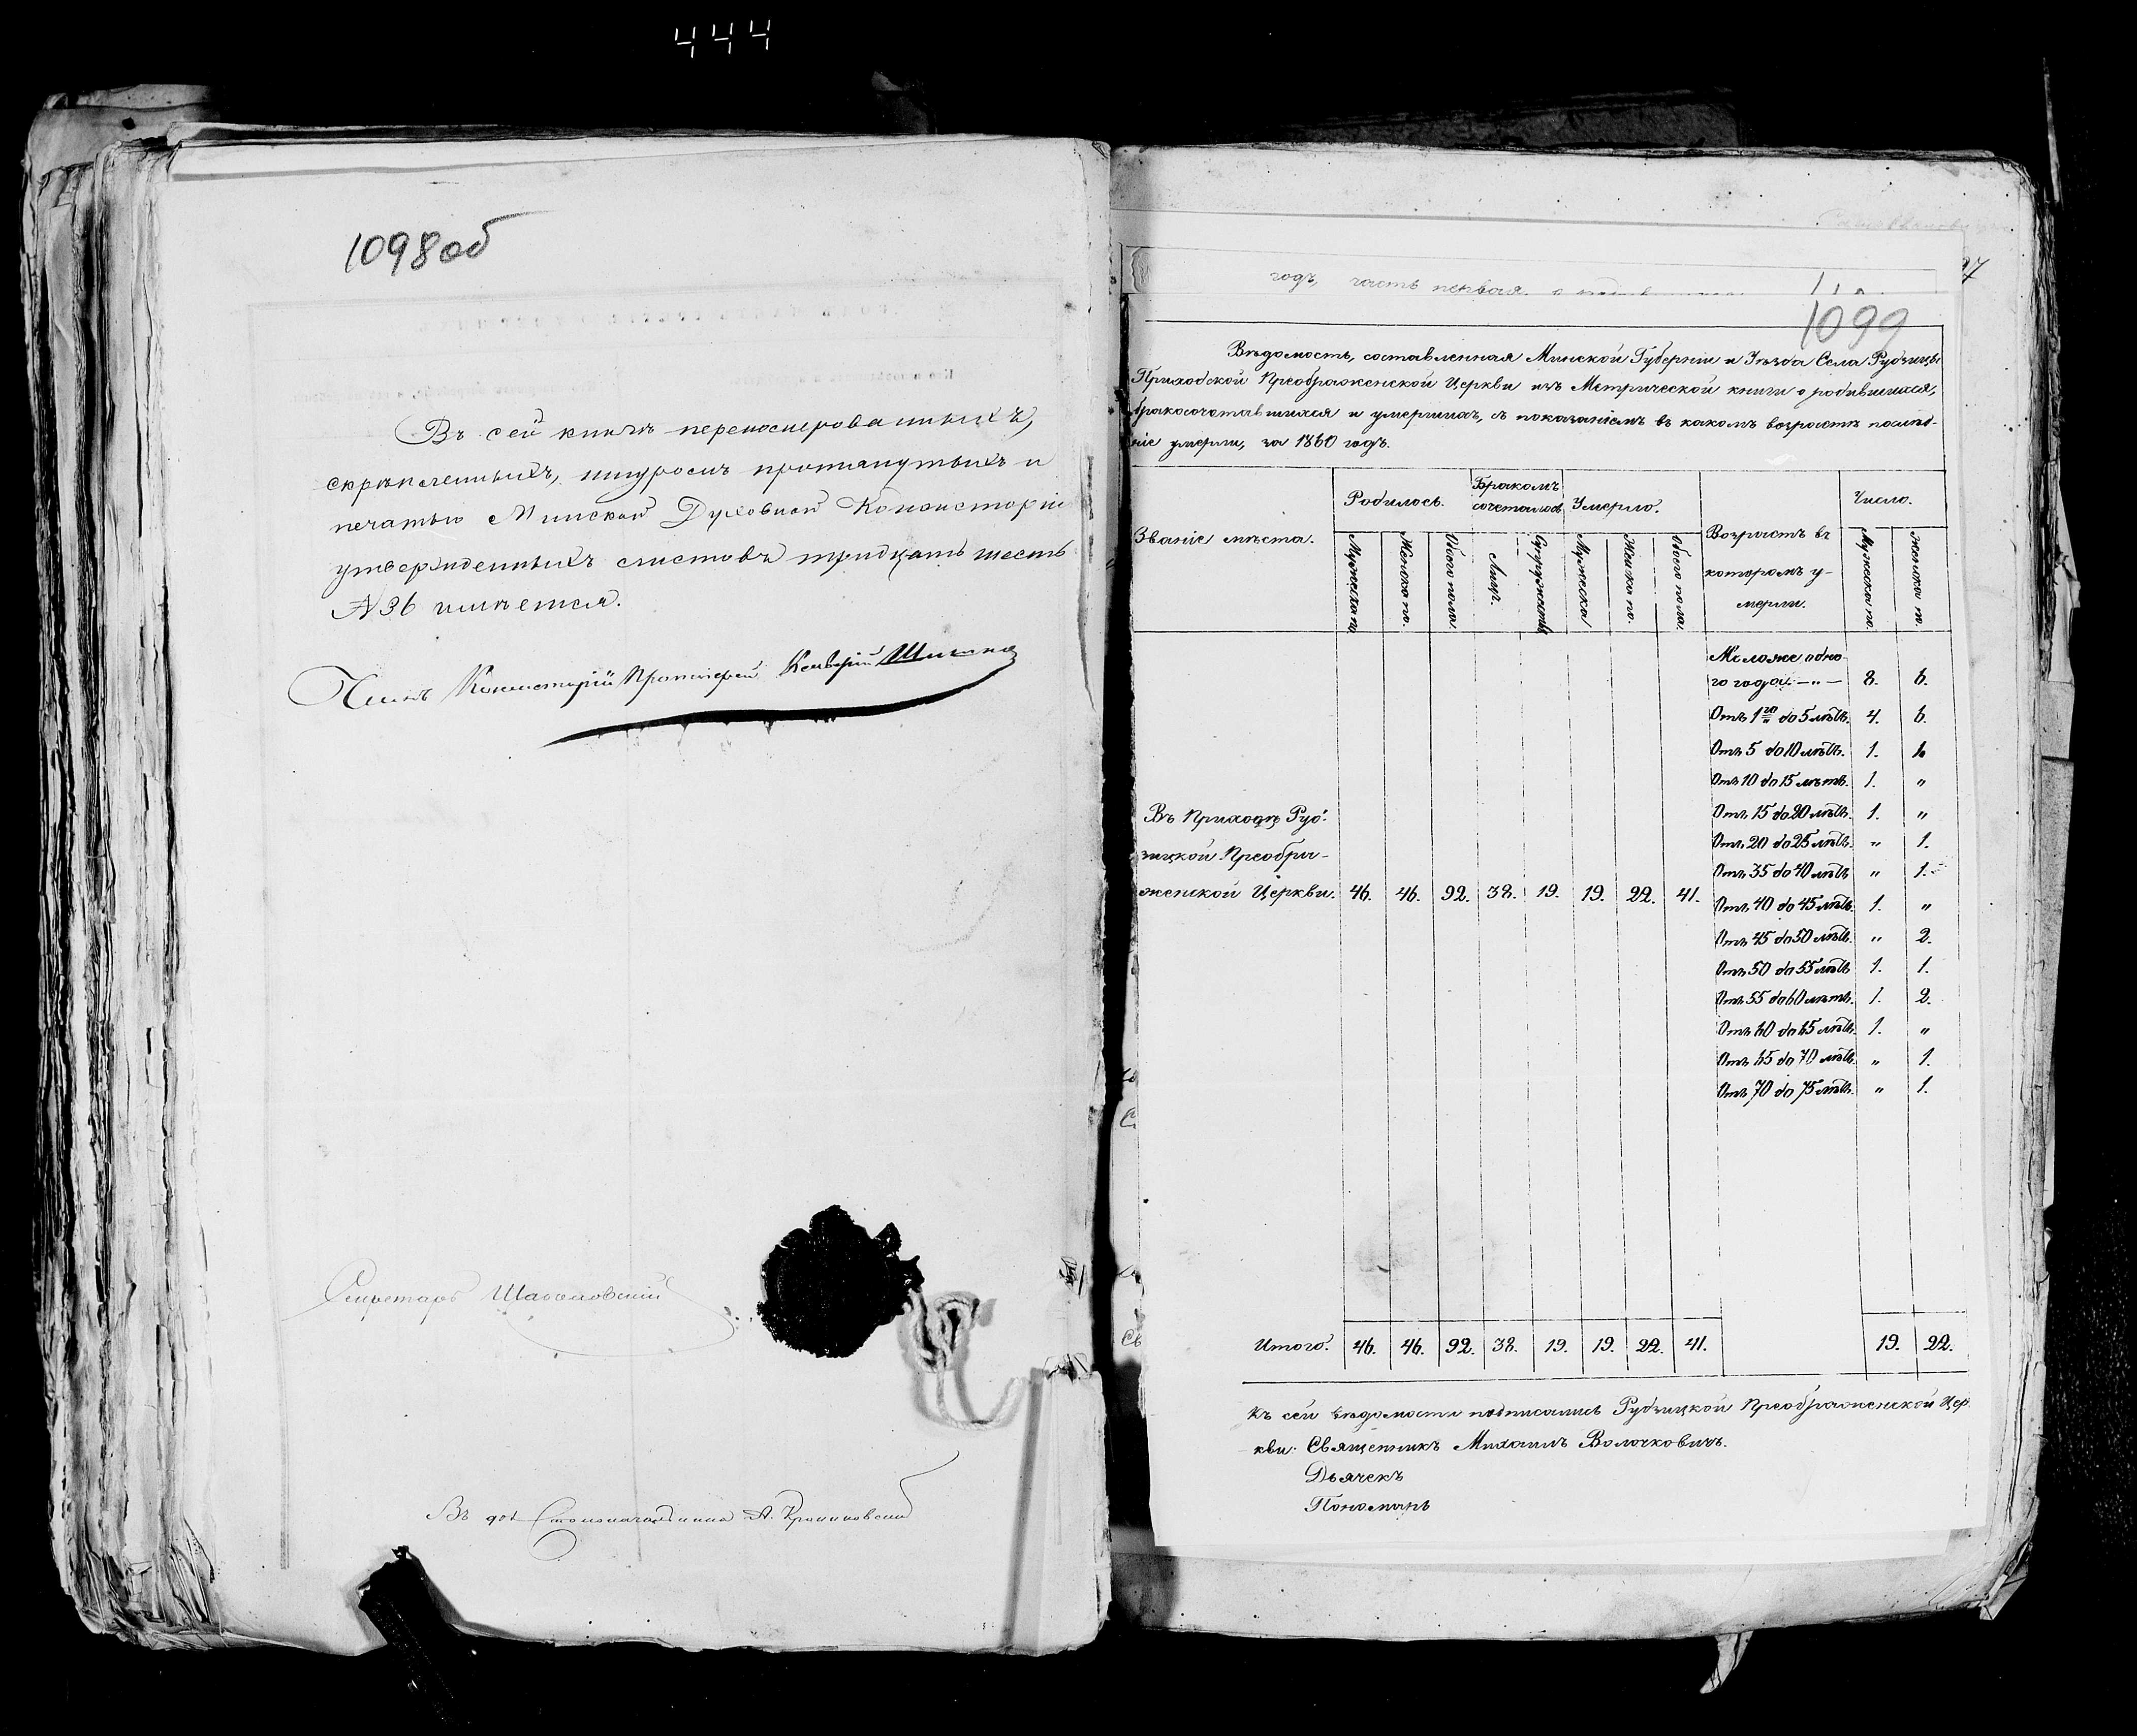 444
1098об
Въ сей книгѣ перенумерованныхъ,
скрѣпленныхъ, шнуромъ протянутыхъ и
печатью Минской Духовной Консисторіи
утвержденныхъ листовъ тридцать шесть
№ 36 имѣется.
Членъ Консисторіи Протоіерей
Секретарь
Въ дол. Столоначальника А.
годъ, часть первая, о
1099
Вѣдомость, составленная Минской Губерніи и Уѣзда Села Рубѣжицы
Приходской Преображенской Церкви изъ Метрической книги о родившихся,
бракосочетавшихся и умершихъ, съ показаніемъ въ какомъ возрастѣ послѣд-
ніе умерли, за 1860 годъ.
Званіе мѣста. Родилось. Бракомъ сочеталось Умерло. Возрастъ въ которомъ у-мерли. Число.
Мужеска по. Женска по. Обоего пола. Лицъ. Супружествъ Мужеска Женска по. Обоего пола. Мужеска по. Женска по.
Моложе одно-
го года — „ — 8. 6.
Отъ 1го до 5 лѣтъ. 4. 6.
Отъ 5 до 10 лѣтъ. 1. 1.
Отъ 10 до 15 лѣтъ. 1. „
Отъ 15 до 20 лѣтъ. 1. „
Отъ 20 до 25 лѣтъ. „ 1.
Отъ 35 до 40 лѣтъ „ 1.
Въ Приходѣ
Преобра-
женской Церкви. 46. 46. 92. 38. 19. 19. 22. 41.
Отъ 40 до 45 лѣтъ. 1. „
Отъ 45 до 50 лѣтъ. „ 2.
Отъ 50 до 55 лѣтъ 1. 1.
Отъ 55 до 60 лѣтъ. 1. 2.
Отъ 60 до 65 лѣтъ. 1. „
Отъ 65 до 70 лѣтъ. „ 1.
Отъ 70 до 75 лѣтъ. „ 1.
Итого. 46. 46. 92. 38. 19. 19. 22. 41. 19. 22.
Къ сей вѣдомости подписались Преображенской Цер
кви: Священникъ Михаилъ Волочковичъ.
Дьячекъ
Пономарь